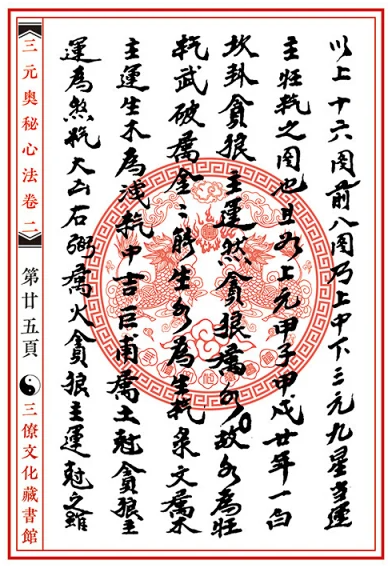 以上十六图前八图乃上中下三元九星当運
主旺炁之图也且如上元甲子甲戌廿年一白
坎卦貪狼主運然貪狼属水故水為旺
炁武破属金〻能生水為生炁彔文属木
主運生木為浅炁中吉巨甫属土尅貪狼主
運為煞炁大凶右弼属火貪狼主運尅之雖
三元奥秘心法卷二
第廿五頁
三僚文化藏書館